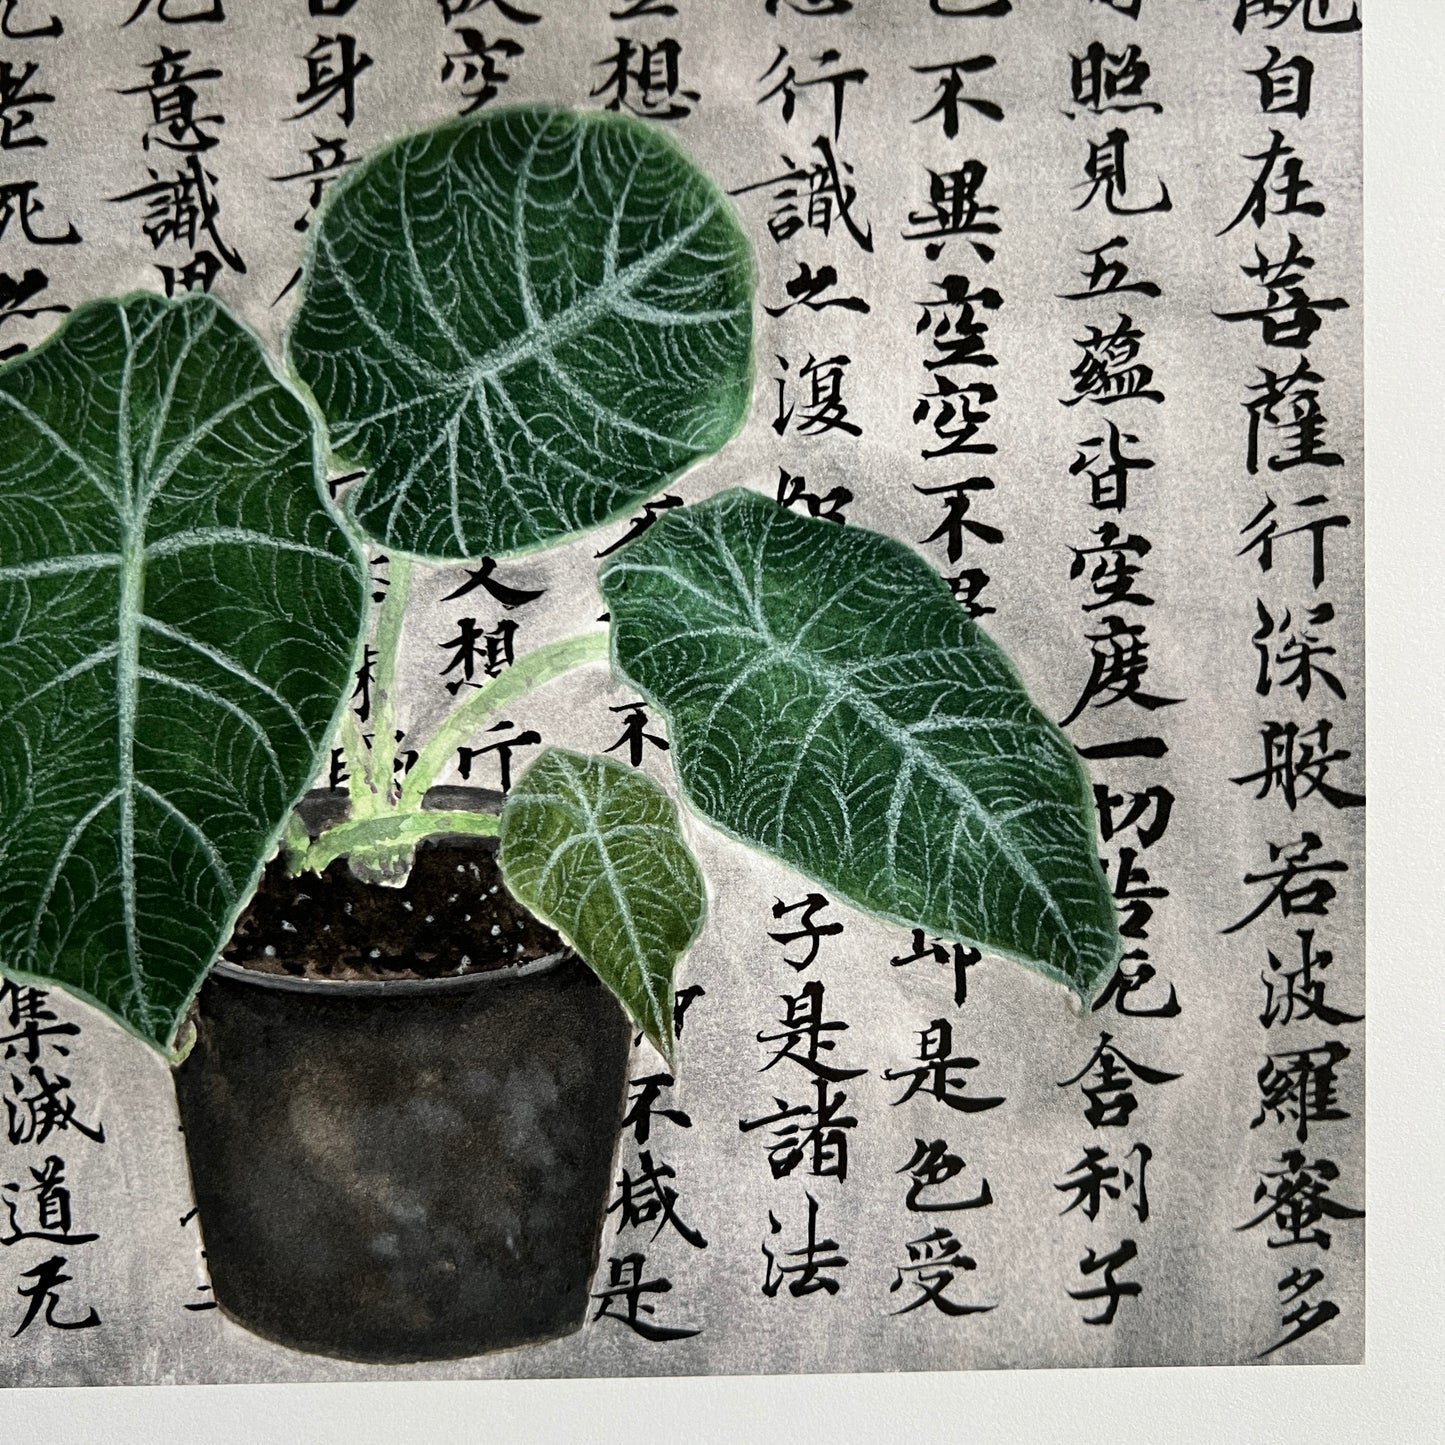 自在菩薩行深般若波羅蜜多
照見五蘊皆空度一切苦厄舍利子
色不異空空不異即是色受
想行識亦復如子是諸法
空想不不減是
故空想行
身意
意識界
老死亦集滅道无